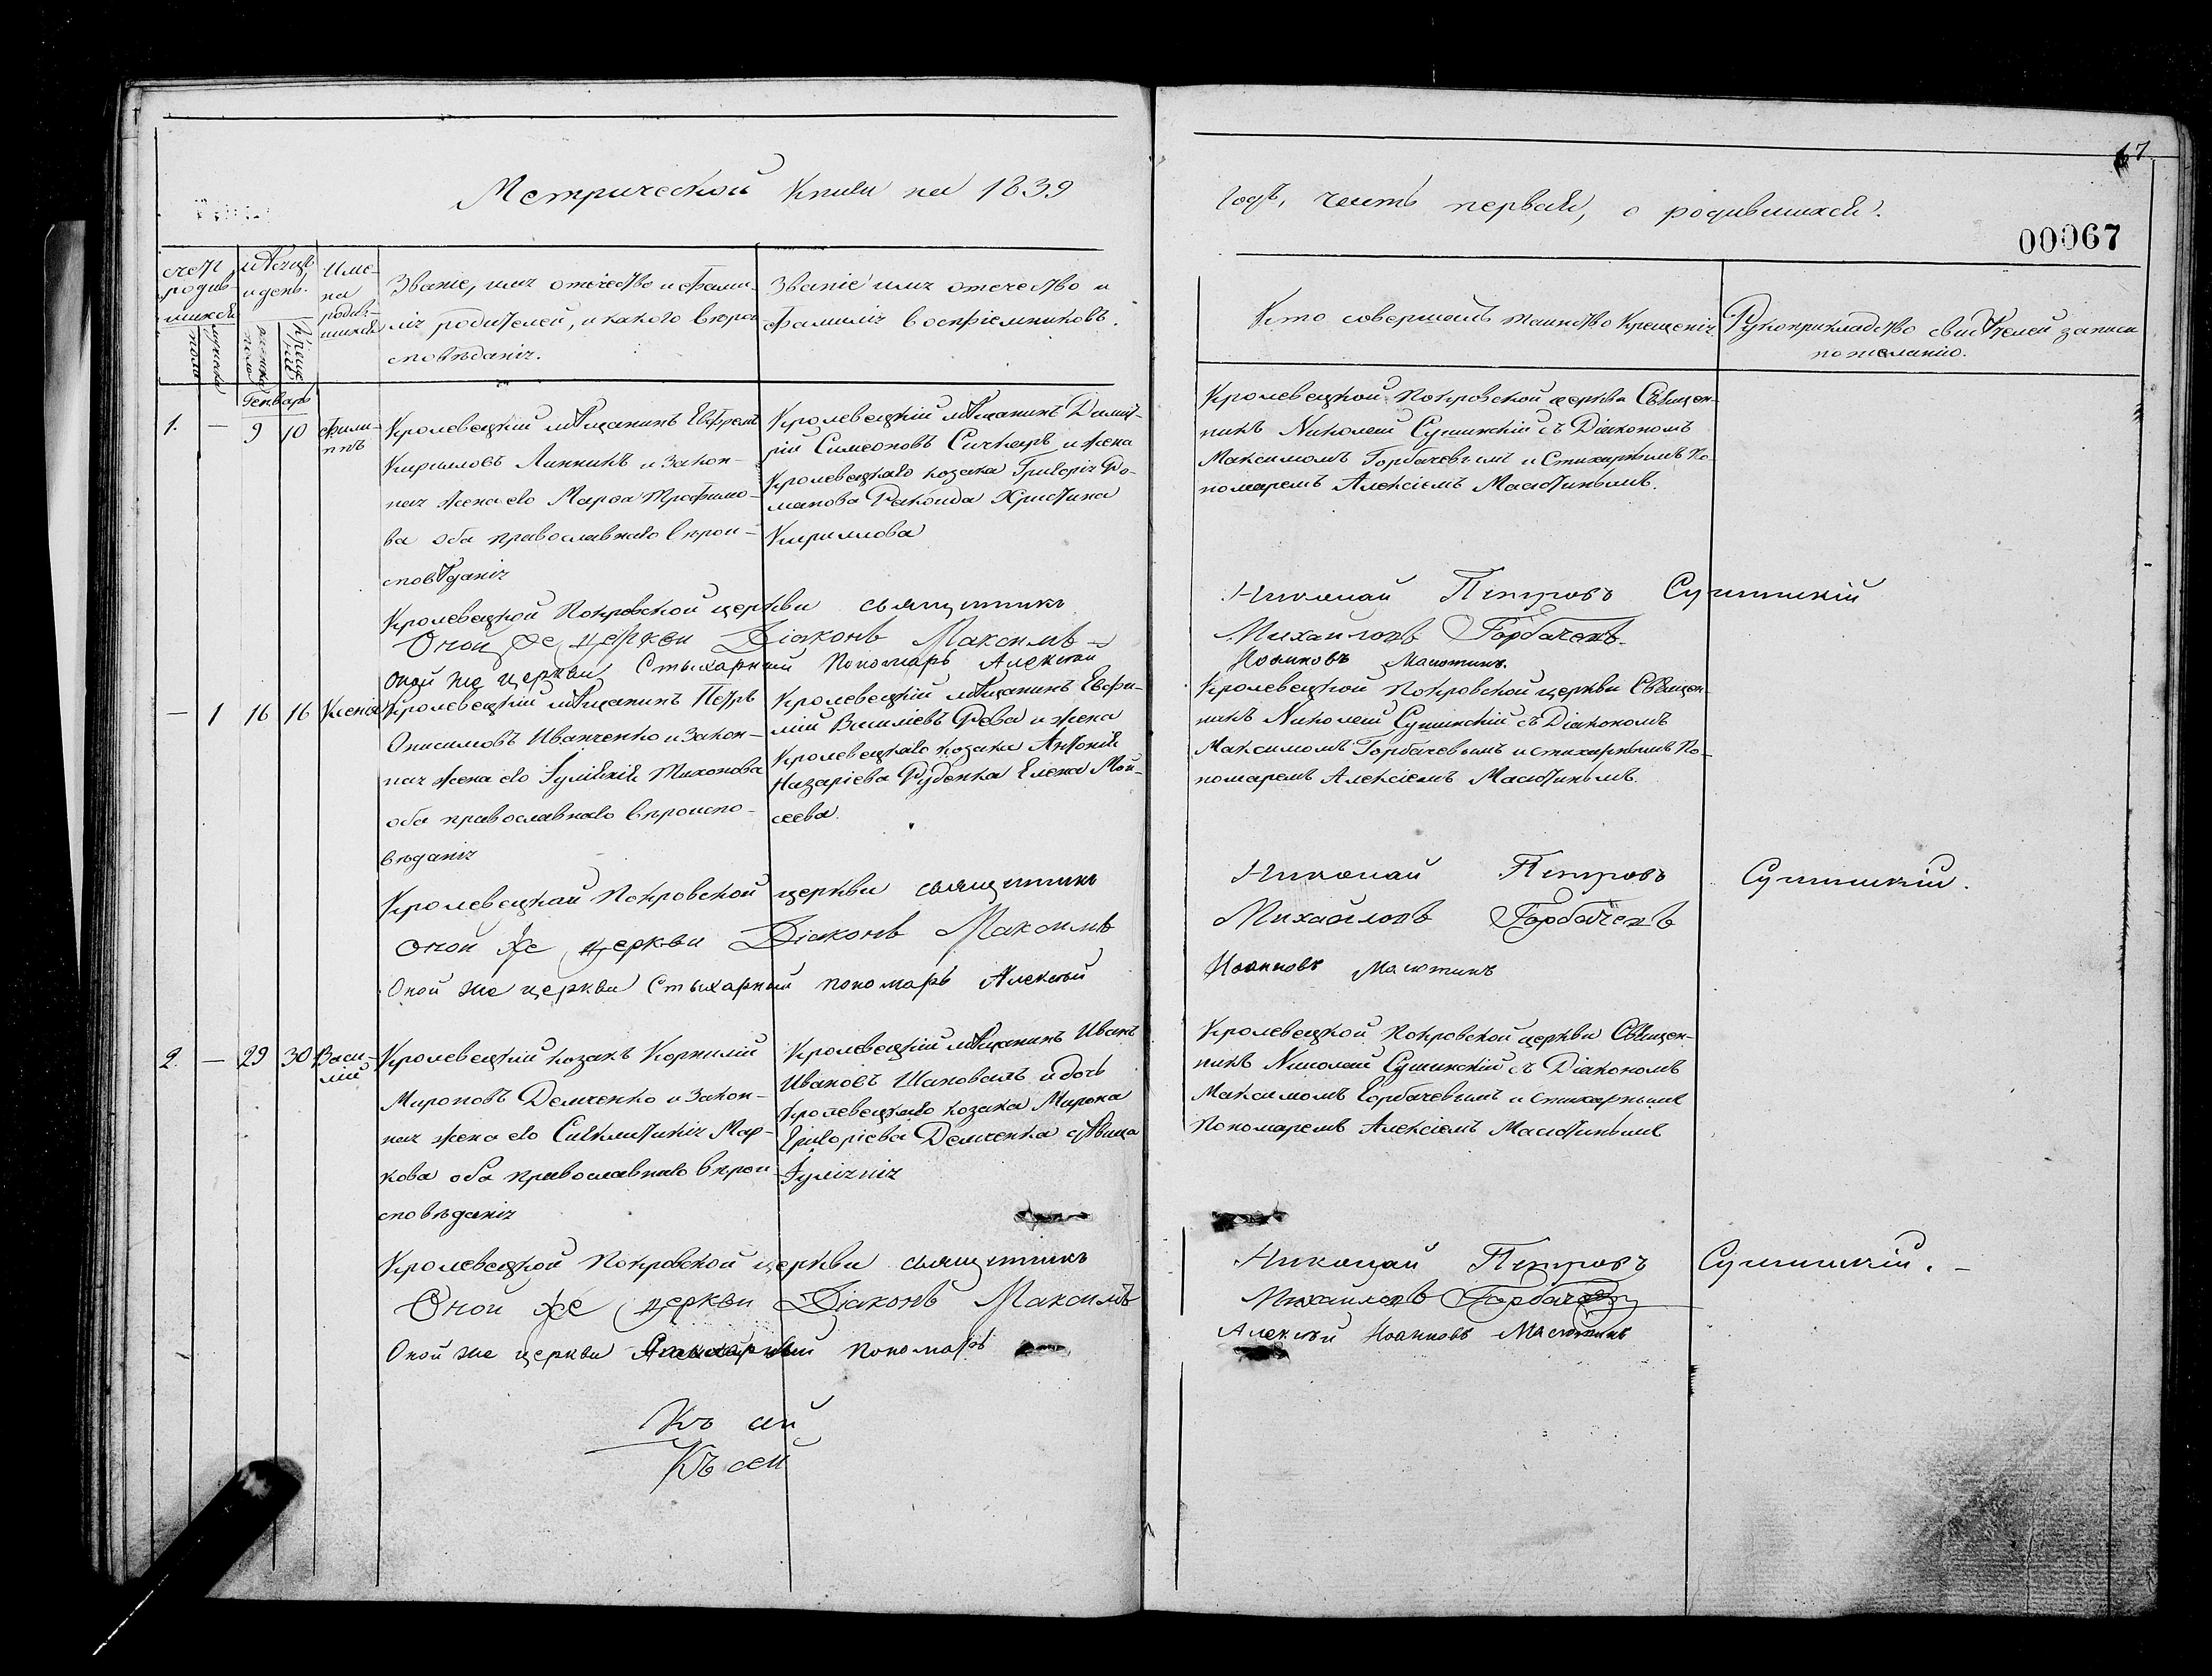 Метрической книги на 1839
годъ, часть первая, о родившихся.
67
00067
счетъ родив-шихся
мужеска
женска
мѣсяцъ и день.
рожде-нія
Креще-нія
Име-на родив-шихся
Званіе, имя отечество и фами-
лія родителей, и какого вѣрои-
сповѣданія.
Званіе имя отечество и
фамилія воспріемниковъ.
Кто совершалъ таинство крещенія
Рукоприкладство свидѣтелей записи
по желанію.
Генварь
1. — 9 10 Фили-ппъ
Кролевецкій мѣщанинъ Евфремъ
Кириловъ Линникъ и закон-
ная жена его Марѳа Трофимо-
ва оба православнаго вѣрои-
сповѣданія
Кролевецкій мѣщанинъ Димит-
рій Симеоновъ Сичкаръ и жена
Кролевецкаго козака Григорія Ро-
манова Христина
Кириллова
Кролевецкой Покровской церкви Священ-
никъ Николай Сушинскій съ Діакономъ
Максимомъ Горбачевымъ и Стихарнымъ По-
номаремъ Алексіемъ Масютинымъ.
Кролевецкой Покровской церкви священникъ Николай Петровъ Сушинскій
Оной же церкви Діаконъ Максимъ Михайловъ Горбачевъ
Оной же церкви Стыхарный Пономарь Алексѣй Іоанновъ Масютинъ
— 1 16 16 Ксенія
Кролевецкій мѣщанинъ Петръ
Онисимовъ Иванченко и закон-
ная жена его Іуліянія Тихонова
оба православнаго вѣроиспо-
вѣданія
Кролевецкій мѣщанинъ Евфи-
мій Василіевъ Рева и жена
Кролевецкаго козака Антонія
Назаріева Руденка Елена Мои-
сеева.
Кролевецкой Покровской церкви Священ-
никъ Николай Сушинскій съ Діакономъ
Максимомъ Горбачевымъ и стихарнымъ По-
номаремъ Алексіемъ Масютинымъ.
Кролевецкой Покровской церкви священникъ Николай Петровъ Сушинскій.
Оной же церкви Діаконъ Максимъ Михайловъ Горбачевъ
Оной же церкви Стыхарный пономарь Алексѣй Іоанновъ Масютинъ
2. — 29 30 Васи-лій
Кролевецкій козакъ Корнилій
Мироновъ Демченко и закон-
ная жена его Синклитикія Мар-
кова оба православнаго вѣрои-
сповѣданія
Кролевецкій мѣщанинъ Иванъ
Ивановъ Шаповалъ и дочь
Кролевецкаго козака Мирона
Григоріева Демченка дѣвица
Іуліянія
Кролевецкой Покровской церкви Священ-
никъ Николай Сушинскій съ Діакономъ
Максимомъ Горбачевымъ и стихарнымъ
Пономаремъ Алексіемъ Масютинымъ
Кролевецкой Покровской церкви священникъ Николай Петровъ Сушинскій. —
Оной же церкви Діаконъ Максимъ Михайловъ Горбачевъ
Оной же церкви Стихарный пономарь Алексѣй Іоанновъ Масютинъ
Къ сей
Къ сей